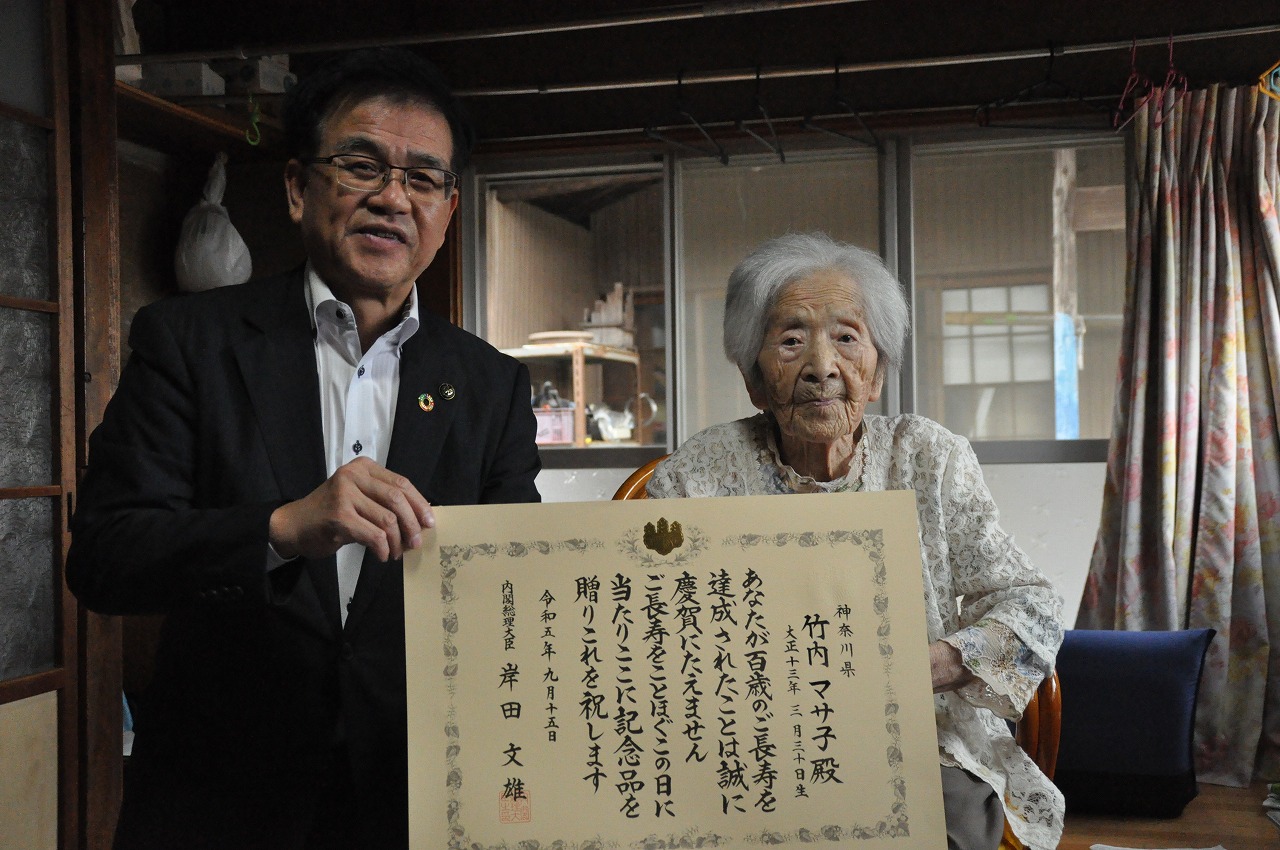 神奈川県
竹内 マサ子殿
大正十三年 三月三十日生
あなたが百歳のご長寿を
達成されたことは誠に
慶賀にたえません
ご長寿をことほぐこの日に
当たりここに記念品を
贈りこれを祝します
令和五年九月十五日
内閣総理大臣 岸田 文雄